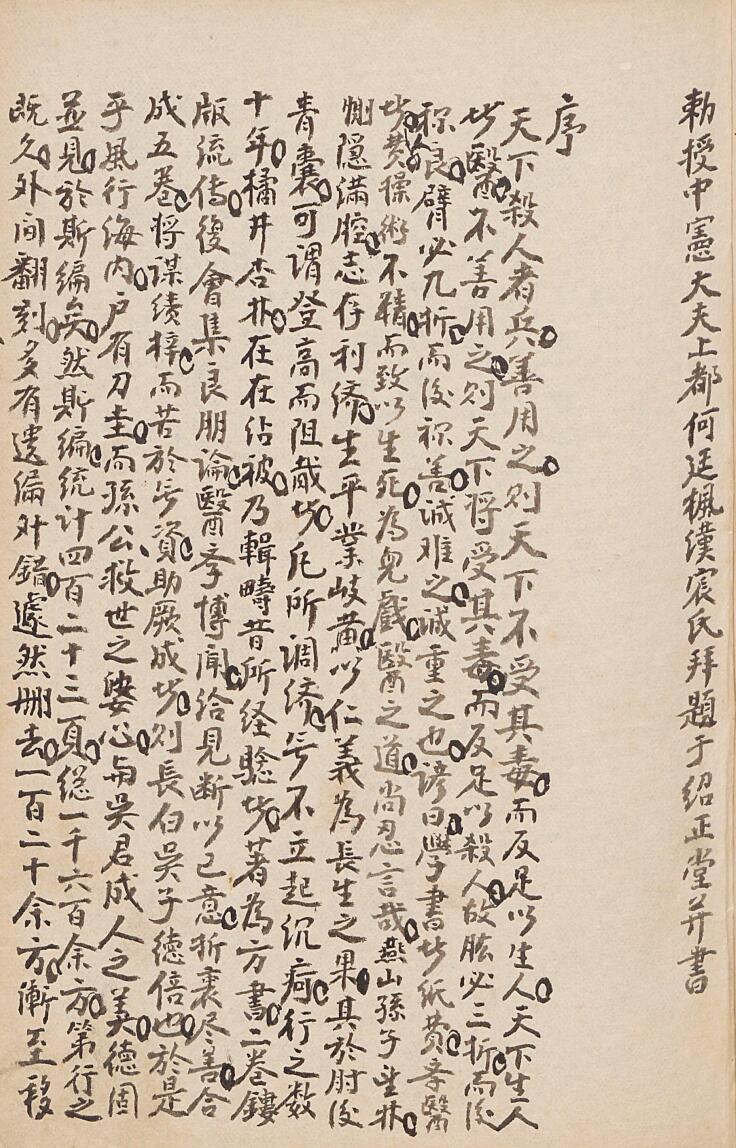 勅授中憲大夫上都何廷楓漢宸氏拜題于紹正堂并書
序
天下殺人者兵善用之則天下不受其毒而反足以生人天下生人
者醫不善用之則天下將受其毒而反足以殺人故肱必三折而後
称良臂必九折而後称善誠难之誠重之也諺曰學書者紙費孝醫
者人費操術不精而致以生死為児戯醫之道尚忍言哉燕山孫子望林
惻隠滿腔志存利济生平業岐黄以仁義為長生之果其於肘後
青囊可謂登高而阻哉者凢所調济旡不立起沉疴行之数
十年橘井杏林在在沾被乃輯疇昔所経騐者著為方書二巻鏤
版流传復會集良朋論醫孝博聞給見断以己意折衷尽善合
成五巻将謀续梓而苦於旡資助厥成者則長白吳子德信也於是
乎風行海内户有刀圭而孫公救世之婆心与吳君成人之美德固
並見於斯編矣然斯編統计四百二十三頁総一千六百余方第行之
既久外间翻刻多有遗漏舛錯遽然删去一百二十余方漸至移